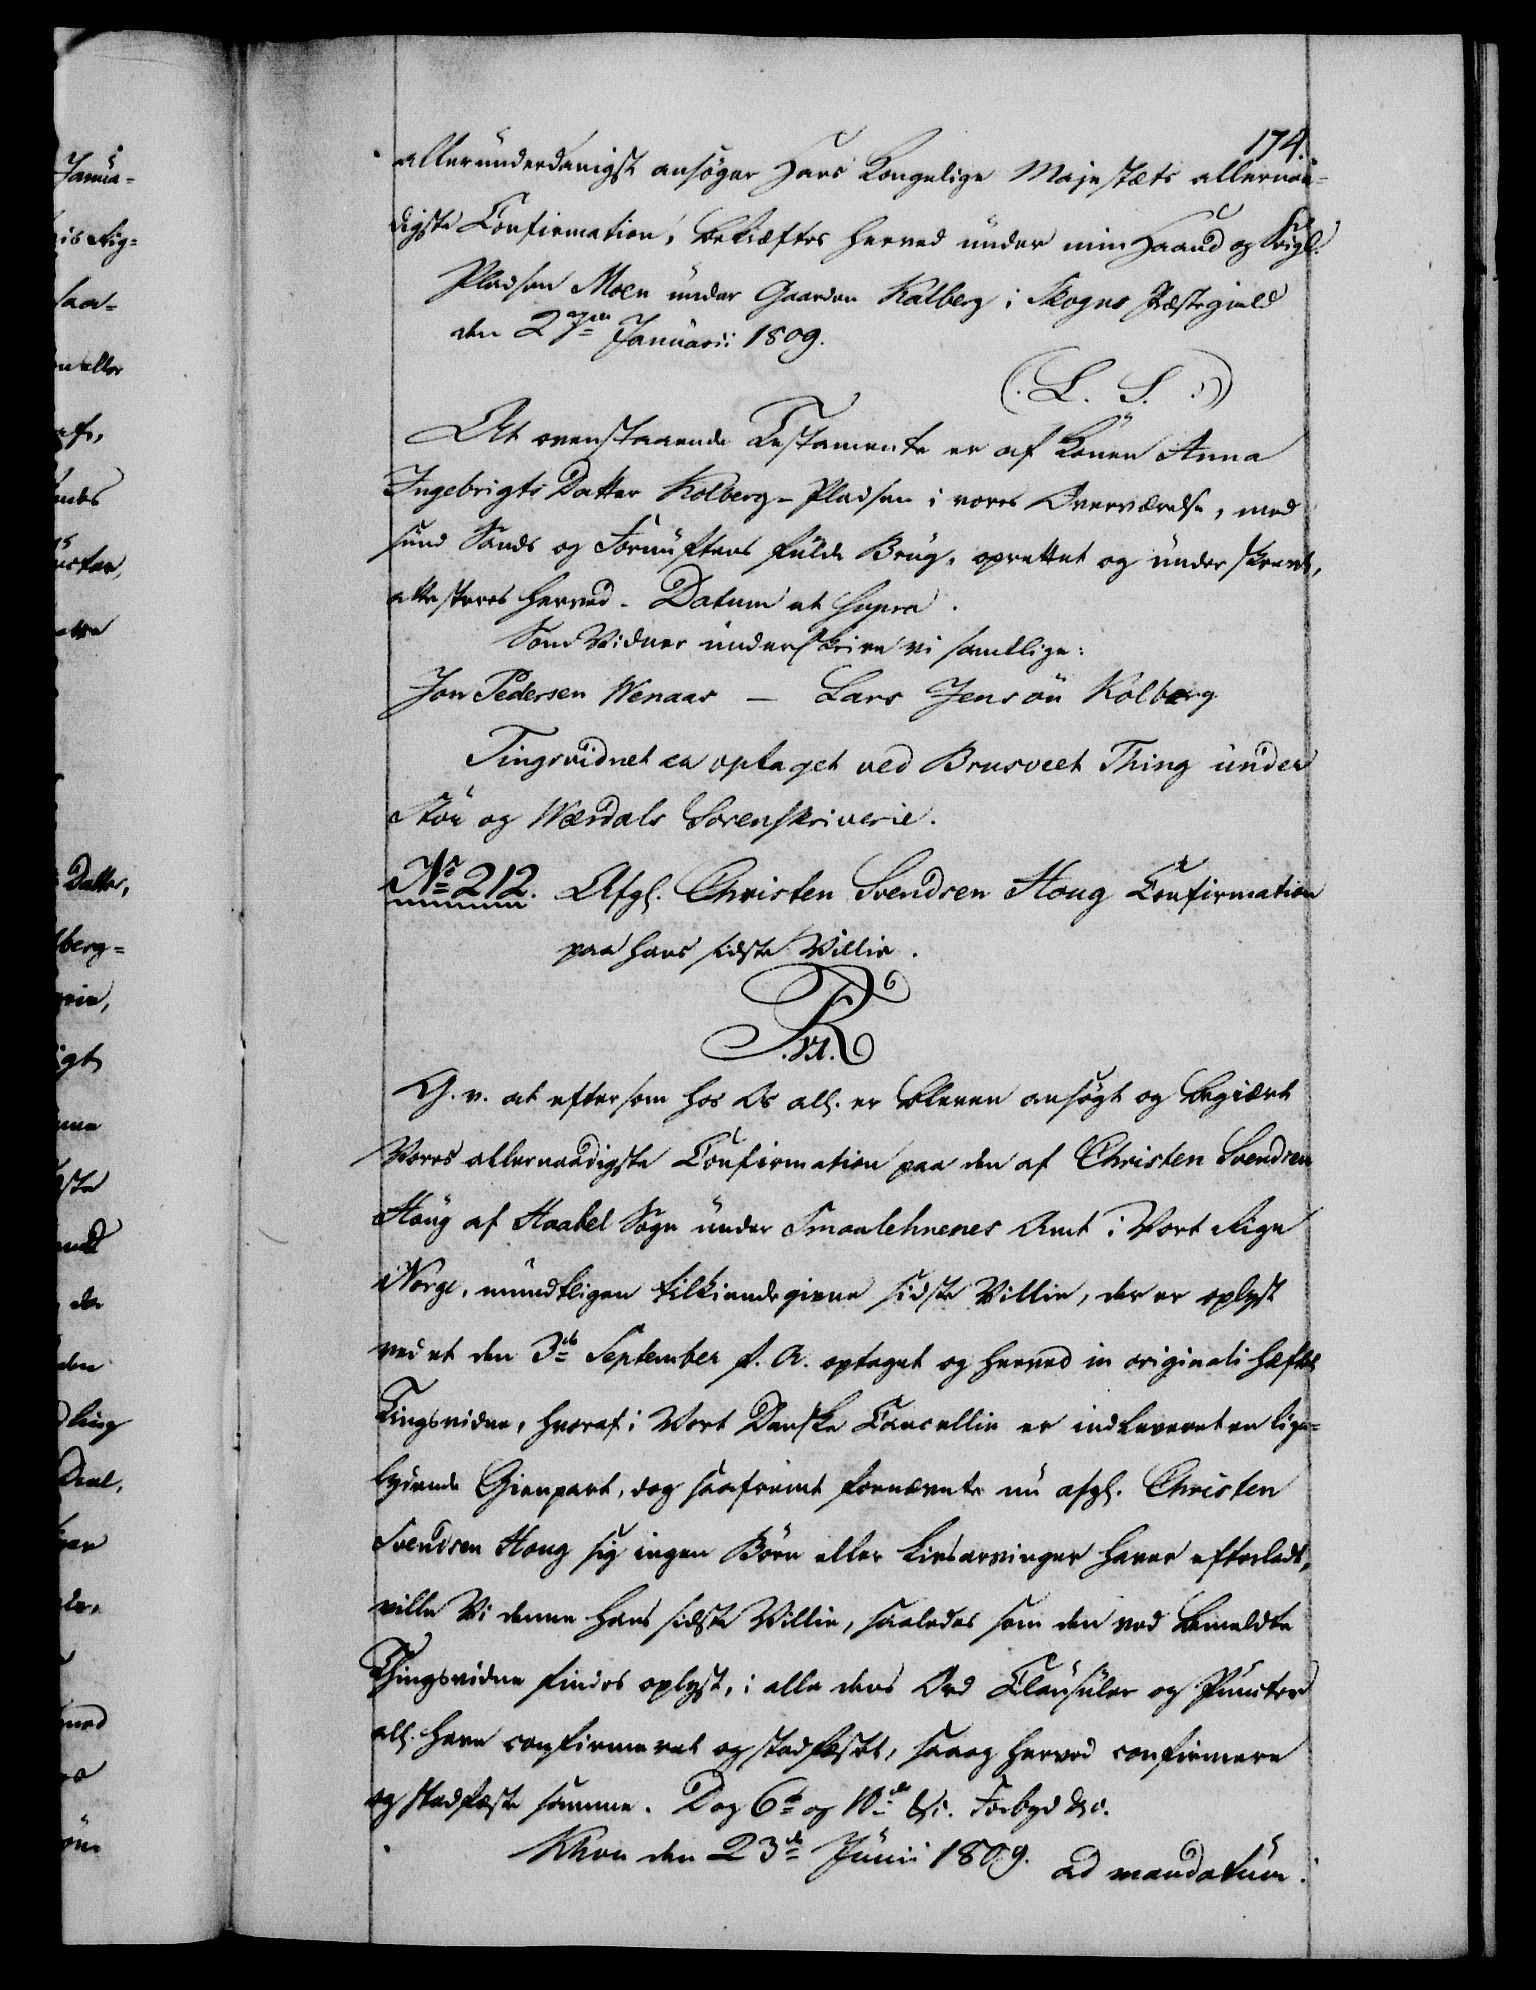 174.
allerunderdanigst ansøger Hans Kongelige Majestæts allernaa-
digste Confirmation, bekræftes herved under min Haand og Seigl.
Pladsen Moen under Gaarden Kalberg i Skogns Præstegield
den 27de Januarii 1809.
(. L. S. :)
At ovenstaaende Testamente er af Konen Anna
Ingebrigts Datter Kolberg-Pladsen i vores Overværelse, med
sund Sands og Fornuftens fulde Brug, oprettet og underskrevet,
attesteres herved. Datum ut supra.
Som Vidner underskrive vi samtlige:
Jon Pedersen Wenaas — Lars Jensøn Kolberg
Tingsvidnet er optaget ved Brusveet Thing under
Stör og Værdals Sorenskriverie.
No 212. Afgl. Christen Svendsen Houg Confirmation
paa hans sidste Villie.
FR
VI.
G. v. at eftersom hos Os all. er bleven ansøgt og begiært
Vores allernaadigste Confirmation paa den af Christen Svendsen
Houg af Haabel Sogn under Smaalehnenes Amt i Vort Rige
Norge, mundtligen tilkiendegivne sidste Villie, der er oplyst
ved et den 3de September f. A. optaget og herved in originali hæftet
Tingsvidne, hvoraf i Vort Danske Cancellie er indleveret en lige-
lydende Gienpart, dog saafremt fornævnte nu afgl. Christen
Svendsen Houg sig ingen Børn eller Livsarvinger haver efterladt,
ville Vi denne hans sidste Villie, saaledes som den ved bemeldte
Thingsvidne findes oplyst, i alle dens Ord Clausuler og Puncter
all. have confirmeret og stadfæstet, saa og herved confirmere
og stadfæste samme. Dog 6te og 10de &c. Forbyd &c.
Khvn den 23de Junii 1809. ad mandatum.